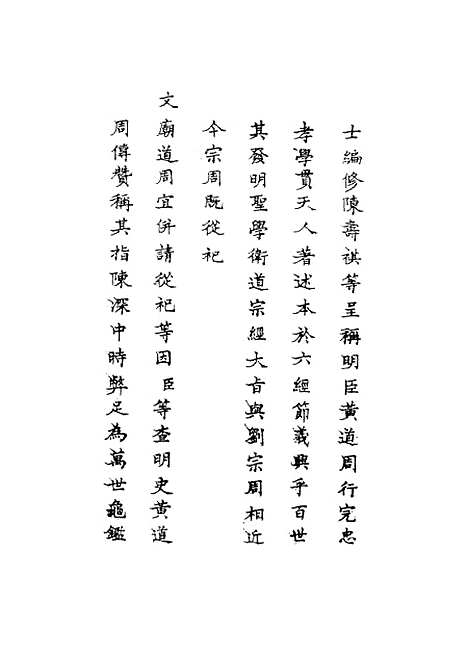 士編修陳壽祺等呈稱明臣黃道周行完忠
孝學貫天人著述本於六經節義興乎百世
其發明聖學衛道宗經大旨與劉宗周相近
今宗周旣從祀
文廟道周宜併請從祀等因臣等查明史黃道
周傳贊稱其指陳深中時弊足為萬世龜鑑